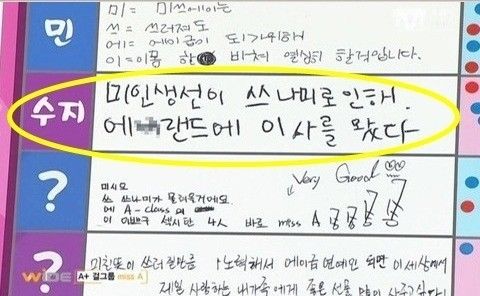 민
미 = 미쓰에이는
쓰 = 쓰러져도
에 = 에이급이 되기위해
이 = 이몸 한 바쳐 열심히 할것입니다.
수지
미인생선이 쓰나미로인해.
에 랜드에 이사를 왔다
?
미시오
쓰 쓰나미가 몰려올거에요
에 A-class의
이 이쁘구 섹시한 4人 바로 miss A
Very Good
?
미친듯이 쓰러질만큼 노력해서 에이급 연예인 되면 이세상에서
제일 사랑하는 내가족에게 좋은 선물 많이 사주고싶다.
WIDE
A+ 걸그룹 miss A